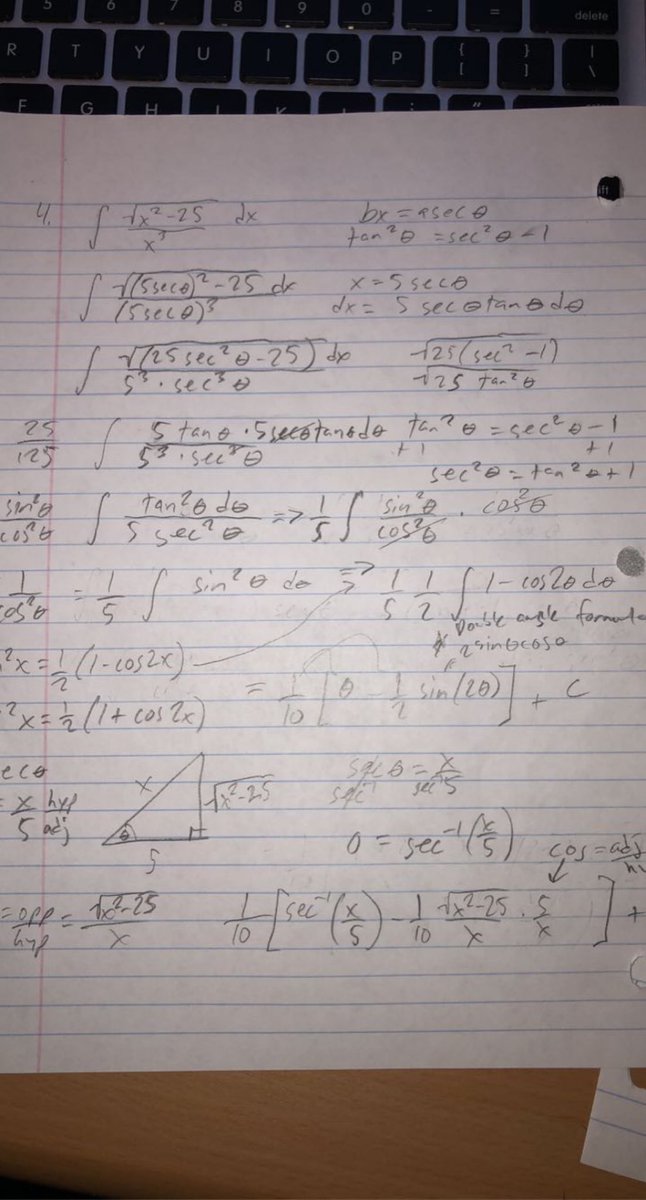 5 6 7 8 9 0 - = delete
R T Y U I O P { [ } ] | \
F G H
4. ∫ √(x²-25) / x³ dx    bx = a sec θ
tan²θ = sec²θ - 1
∫ √((5secθ)² - 25) dx / (5secθ)³    x = 5 secθ
dx = 5 secθ tanθ dθ
∫ √(25 sec²θ - 25) dx / 5³ · sec³θ    √25(sec² - 1)
√25 tan²θ
25/125 ∫ 5 tanθ · 5secθtanθdθ / 5³ · sec³θ    tan²θ = sec²θ - 1
+1 +1
sec²θ = tan²θ + 1
sin²θ/cos²θ ∫ tan²θ dθ / 5 sec²θ => 1/5 ∫ sin²θ/cos²θ · cos²θ
1/cos²θ = 1/5 ∫ sin²θ dθ => 1/5 1/2 ∫ 1 - cos2θ dθ
Double angle formula
2sinθcosθ
²x = 1/2 (1 - cos2x)
= 1/10 [θ - 1/2 sin(2θ)] + C
²x = 1/2 (1 + cos2x)
ecθ
= x/5 hyp/adj    x √(x²-25) θ 5    sec θ = x/5
sec⁻¹ sec⁻¹
θ = sec⁻¹(x/5)    cos = adj
= opp/hyp = √(x²-25)/x    1/10 [sec⁻¹(x/5) - 1/10 √(x²-25)/x · 5/x] +